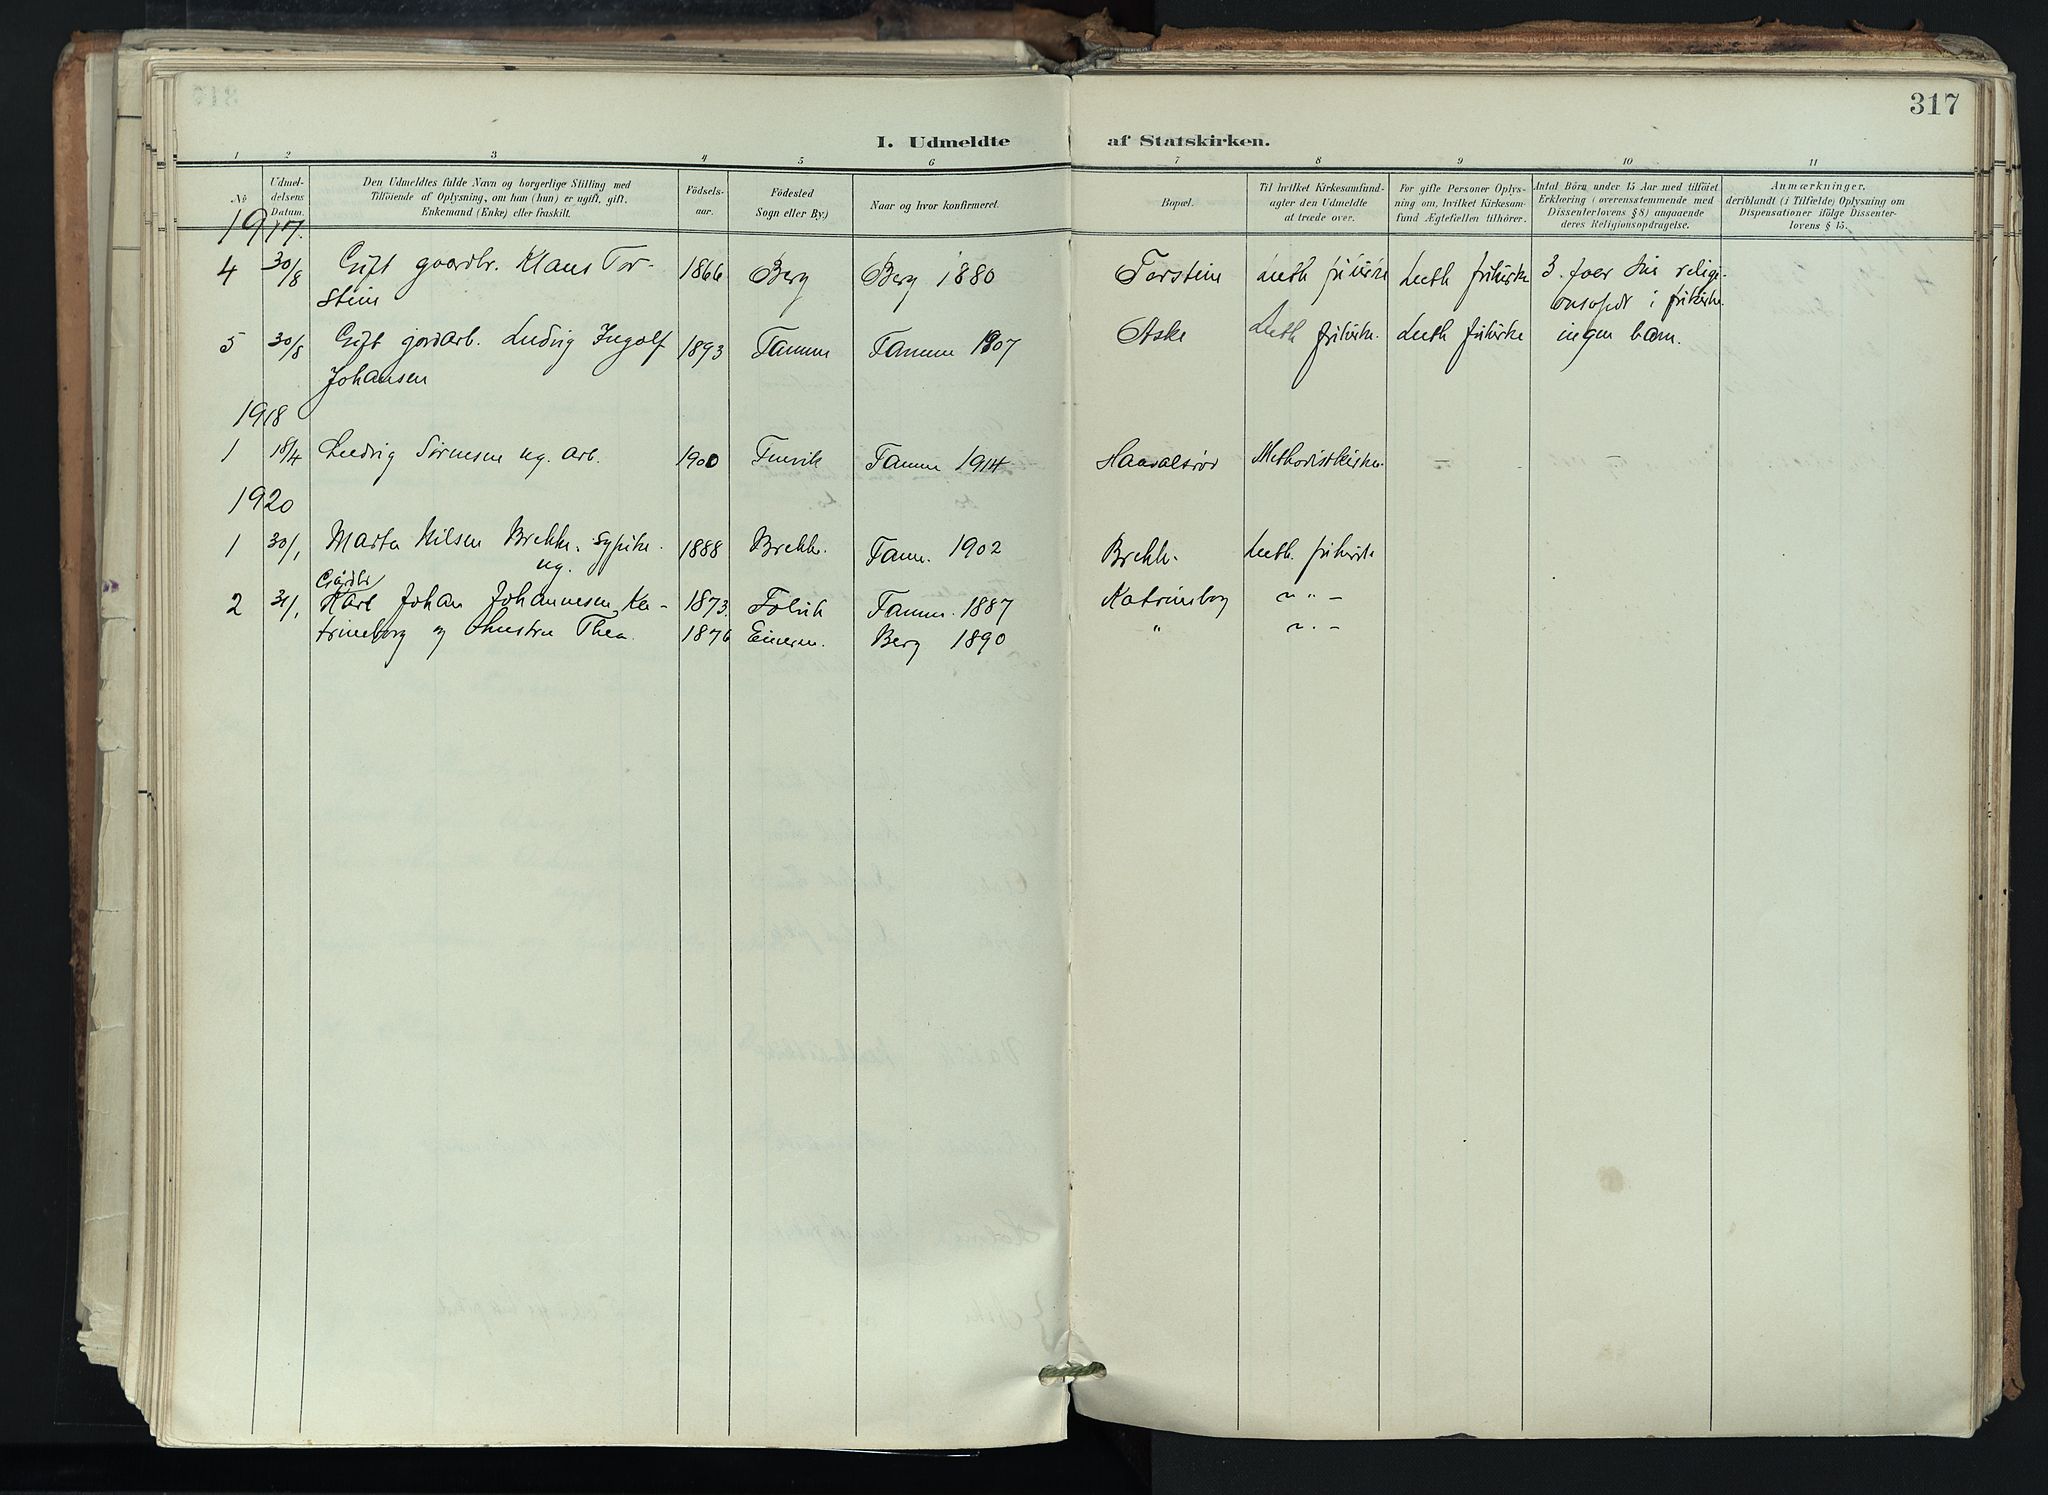 317
I. Udmeldte af Statskirken.
1 2 3 4 5 6 7 8 9 10 11
№
Udmel-
delsens
Datum.
Den Udmeldtes fulde Navn og borgerlige Stilling med
Tilføiende af Oplysning, om han (hun) er ugift, gift,
Enkemand (Enke) eller fraskilt.
Fødsels-
aar.
Fødested
Sogn eller By)
Naar og hvor konfirmeret.
Bopæl.
Til hvilket Kirkesamfund-
agter den Udmeldte
at træde over.
For gifte Personer Oplys-
ning om, hvilket Kirkesam-
fund Ægtefællen tilhører.
Antal Börn under 15 Aar med tilföiet
Erklæring (overensstemmende med
Dissenterlovens § 8) angaaende
deres Religionsopdragelse.
Anmærkninger,
deriblandt (i Tilfælde) Oplysning om
Dispensationer ifölge Dissenter-
lovens § 15.
1917.
4 30/8 Gift gaardbr. Klaus Tor- 1866 Berg Berg 1880 Torstein Luth frikirke Luth frikirke 3. faar sin religi-
stein onsopdr i frikirke.
5 30/8 Gift jordarb. Ludvig Ingolf 1893 Tamm Tamm 1907 Aske Luth frikirke. Luth frikirke ingen barn.
Johansen
1918
1 18/4 Ludvig Sørensen ug. arb. 1900 Tamm 1914 Haavalsrød Methodistkirke. — —
1920
1 30/1 Marta Nilsen Brekke. sypike. 1888 Brekke. Tam. 1902 Brekk. Luth. frikirke
ug.
Gårdbr
2 31/1 Karl Johan Johannesen, Ka- 1873. Tamm. 1887 Katrineborg " —
trineborg og hustru Thea. 1876 Berg 1890 " " —